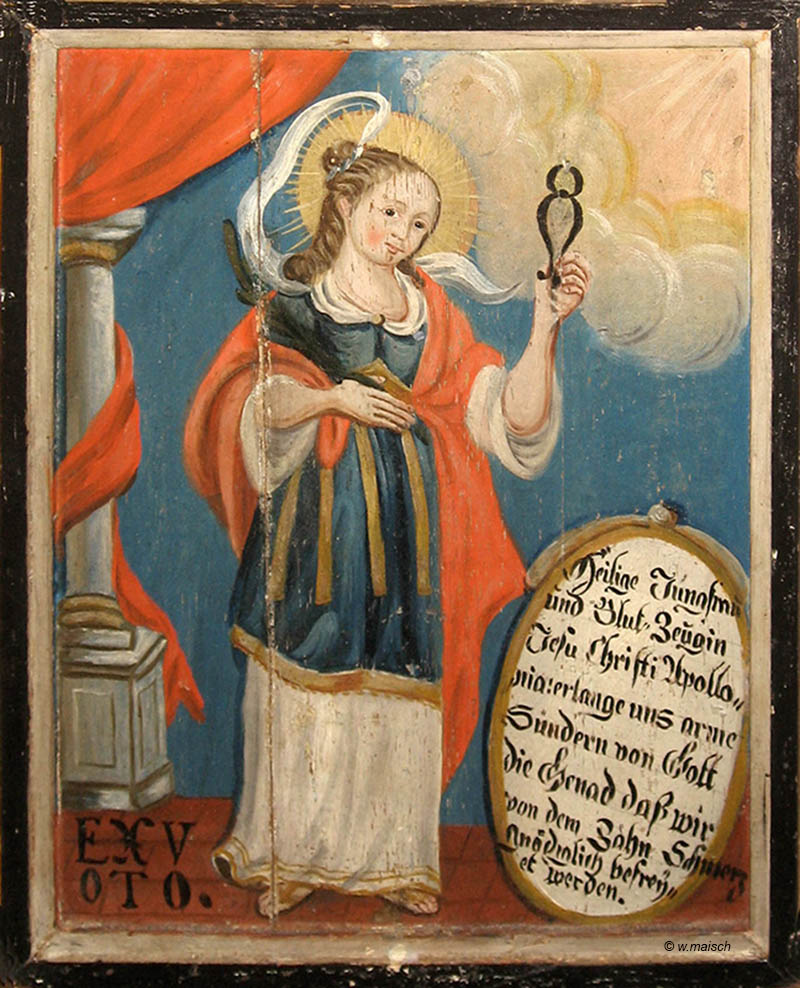 Heilige Jungfrau
und Blut-Zeügin
Jesu Christi Apollo„
nia: erlange uns arme
Sündern von Gott
die Genad daß wir
von dem Zahn Schmerz
gnädiglich befreÿ„
et werden.
EX V
OTO.
© w.maisch